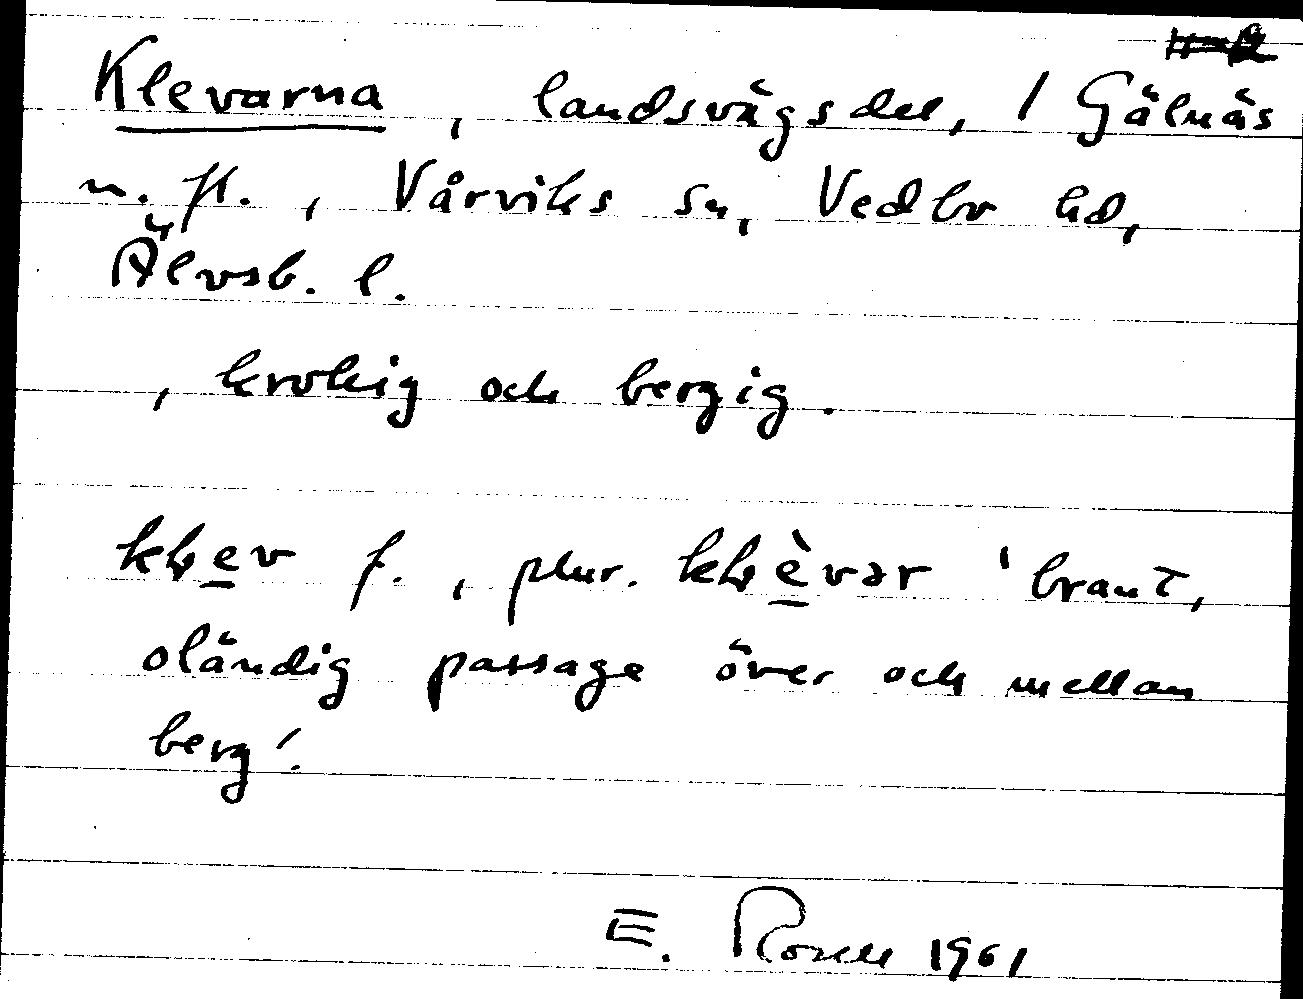 Klevarna, landsvägsdel, 1 Gälnäs
m. fl., Vårviks sn, Vedbo hd,
Älvsb. l.
, krokig och bergig.
klev f., plur. klèvər 'brant,
oländig passage över och mellan
berg'.
E. Rosell 1961